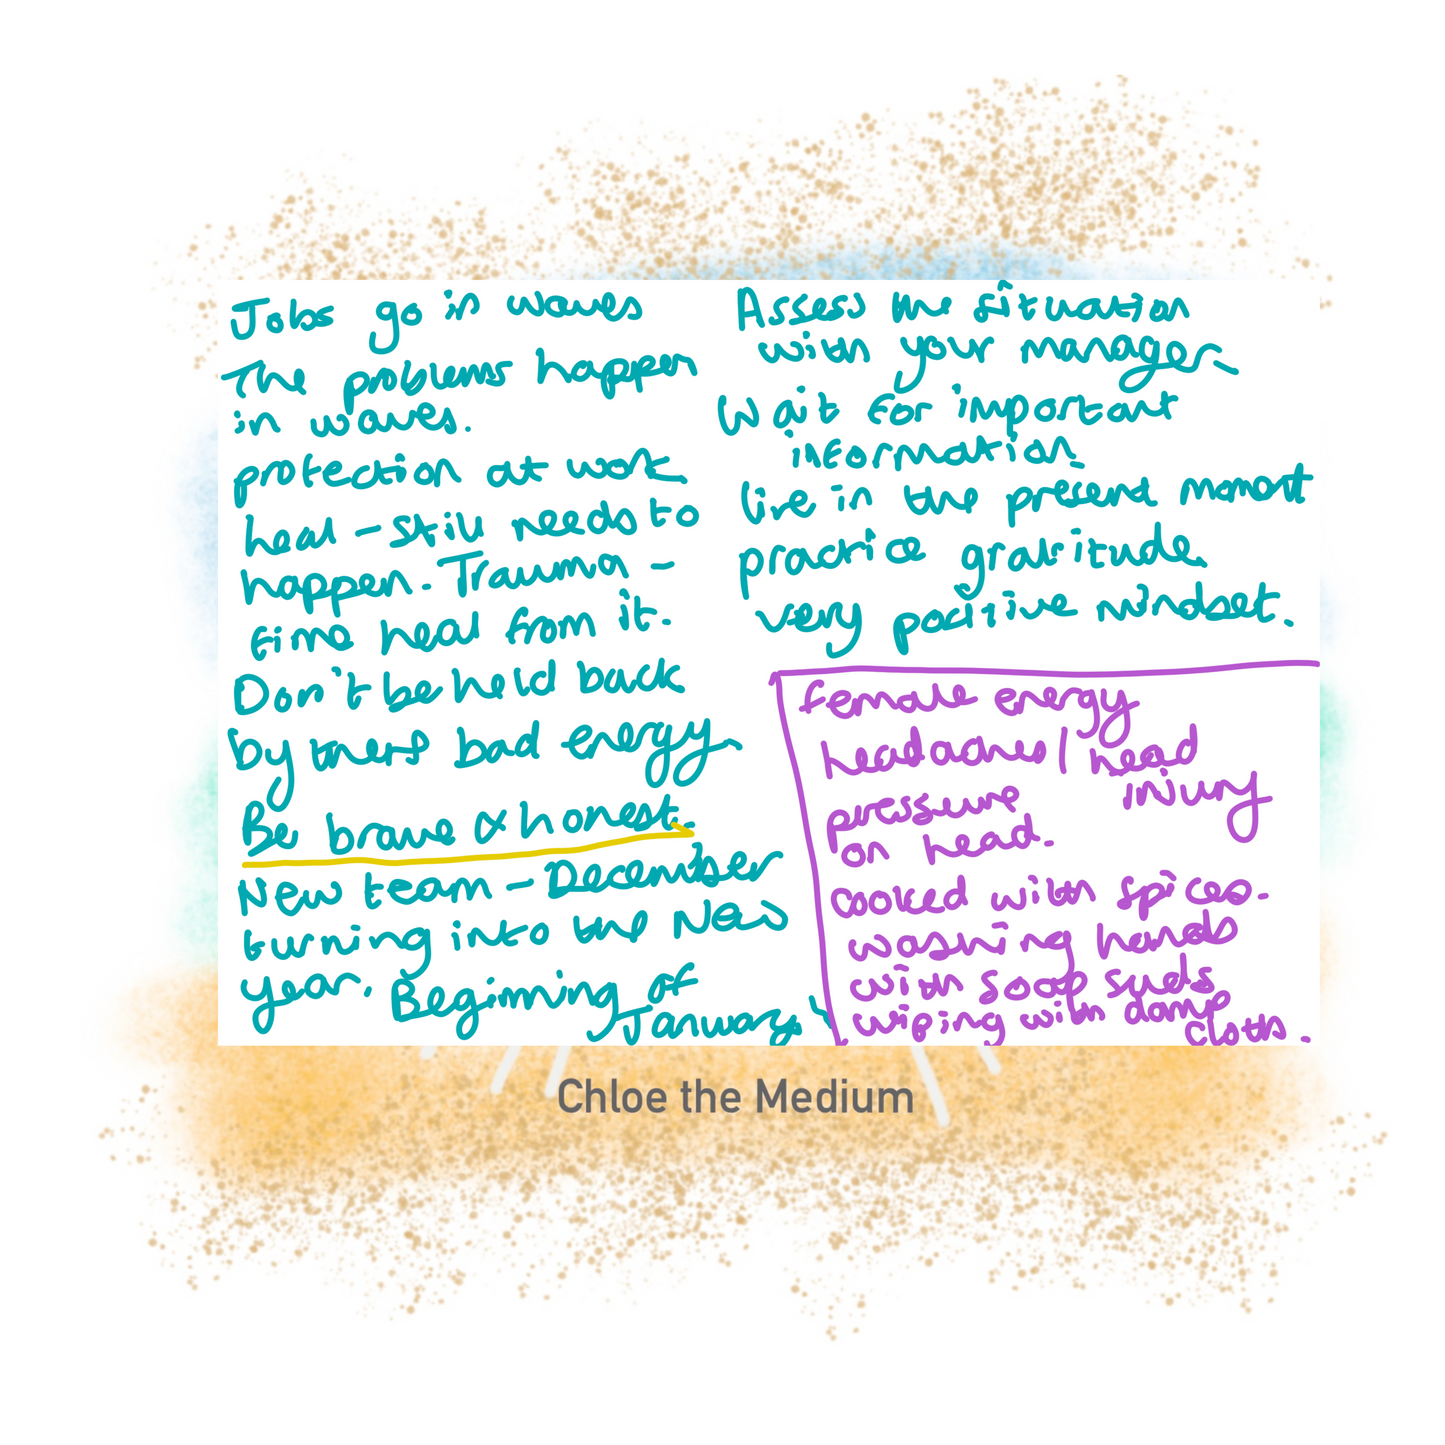 Jobs go in waves
The problems happen
in waves.
protection at work
heal - still needs to
happen. Trauma -
time heal from it.
Don't be held back
by there bad energy.
Be brave & honest.
New team - December
turning into the New
year. Beginning of
January
Assess the situation
with your manager.
Wait for important
information
live in the present moment
practice gratitude.
very positive mindset.
female energy
headaches / head
injury
pressure
on head.
cooked with spices.
washing hands
with soap suds
wiping with damp
cloth.
Chloe the Medium